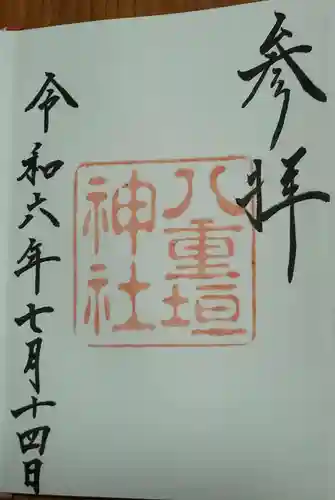 参拝
八重垣
神社
令和六年七月十四日